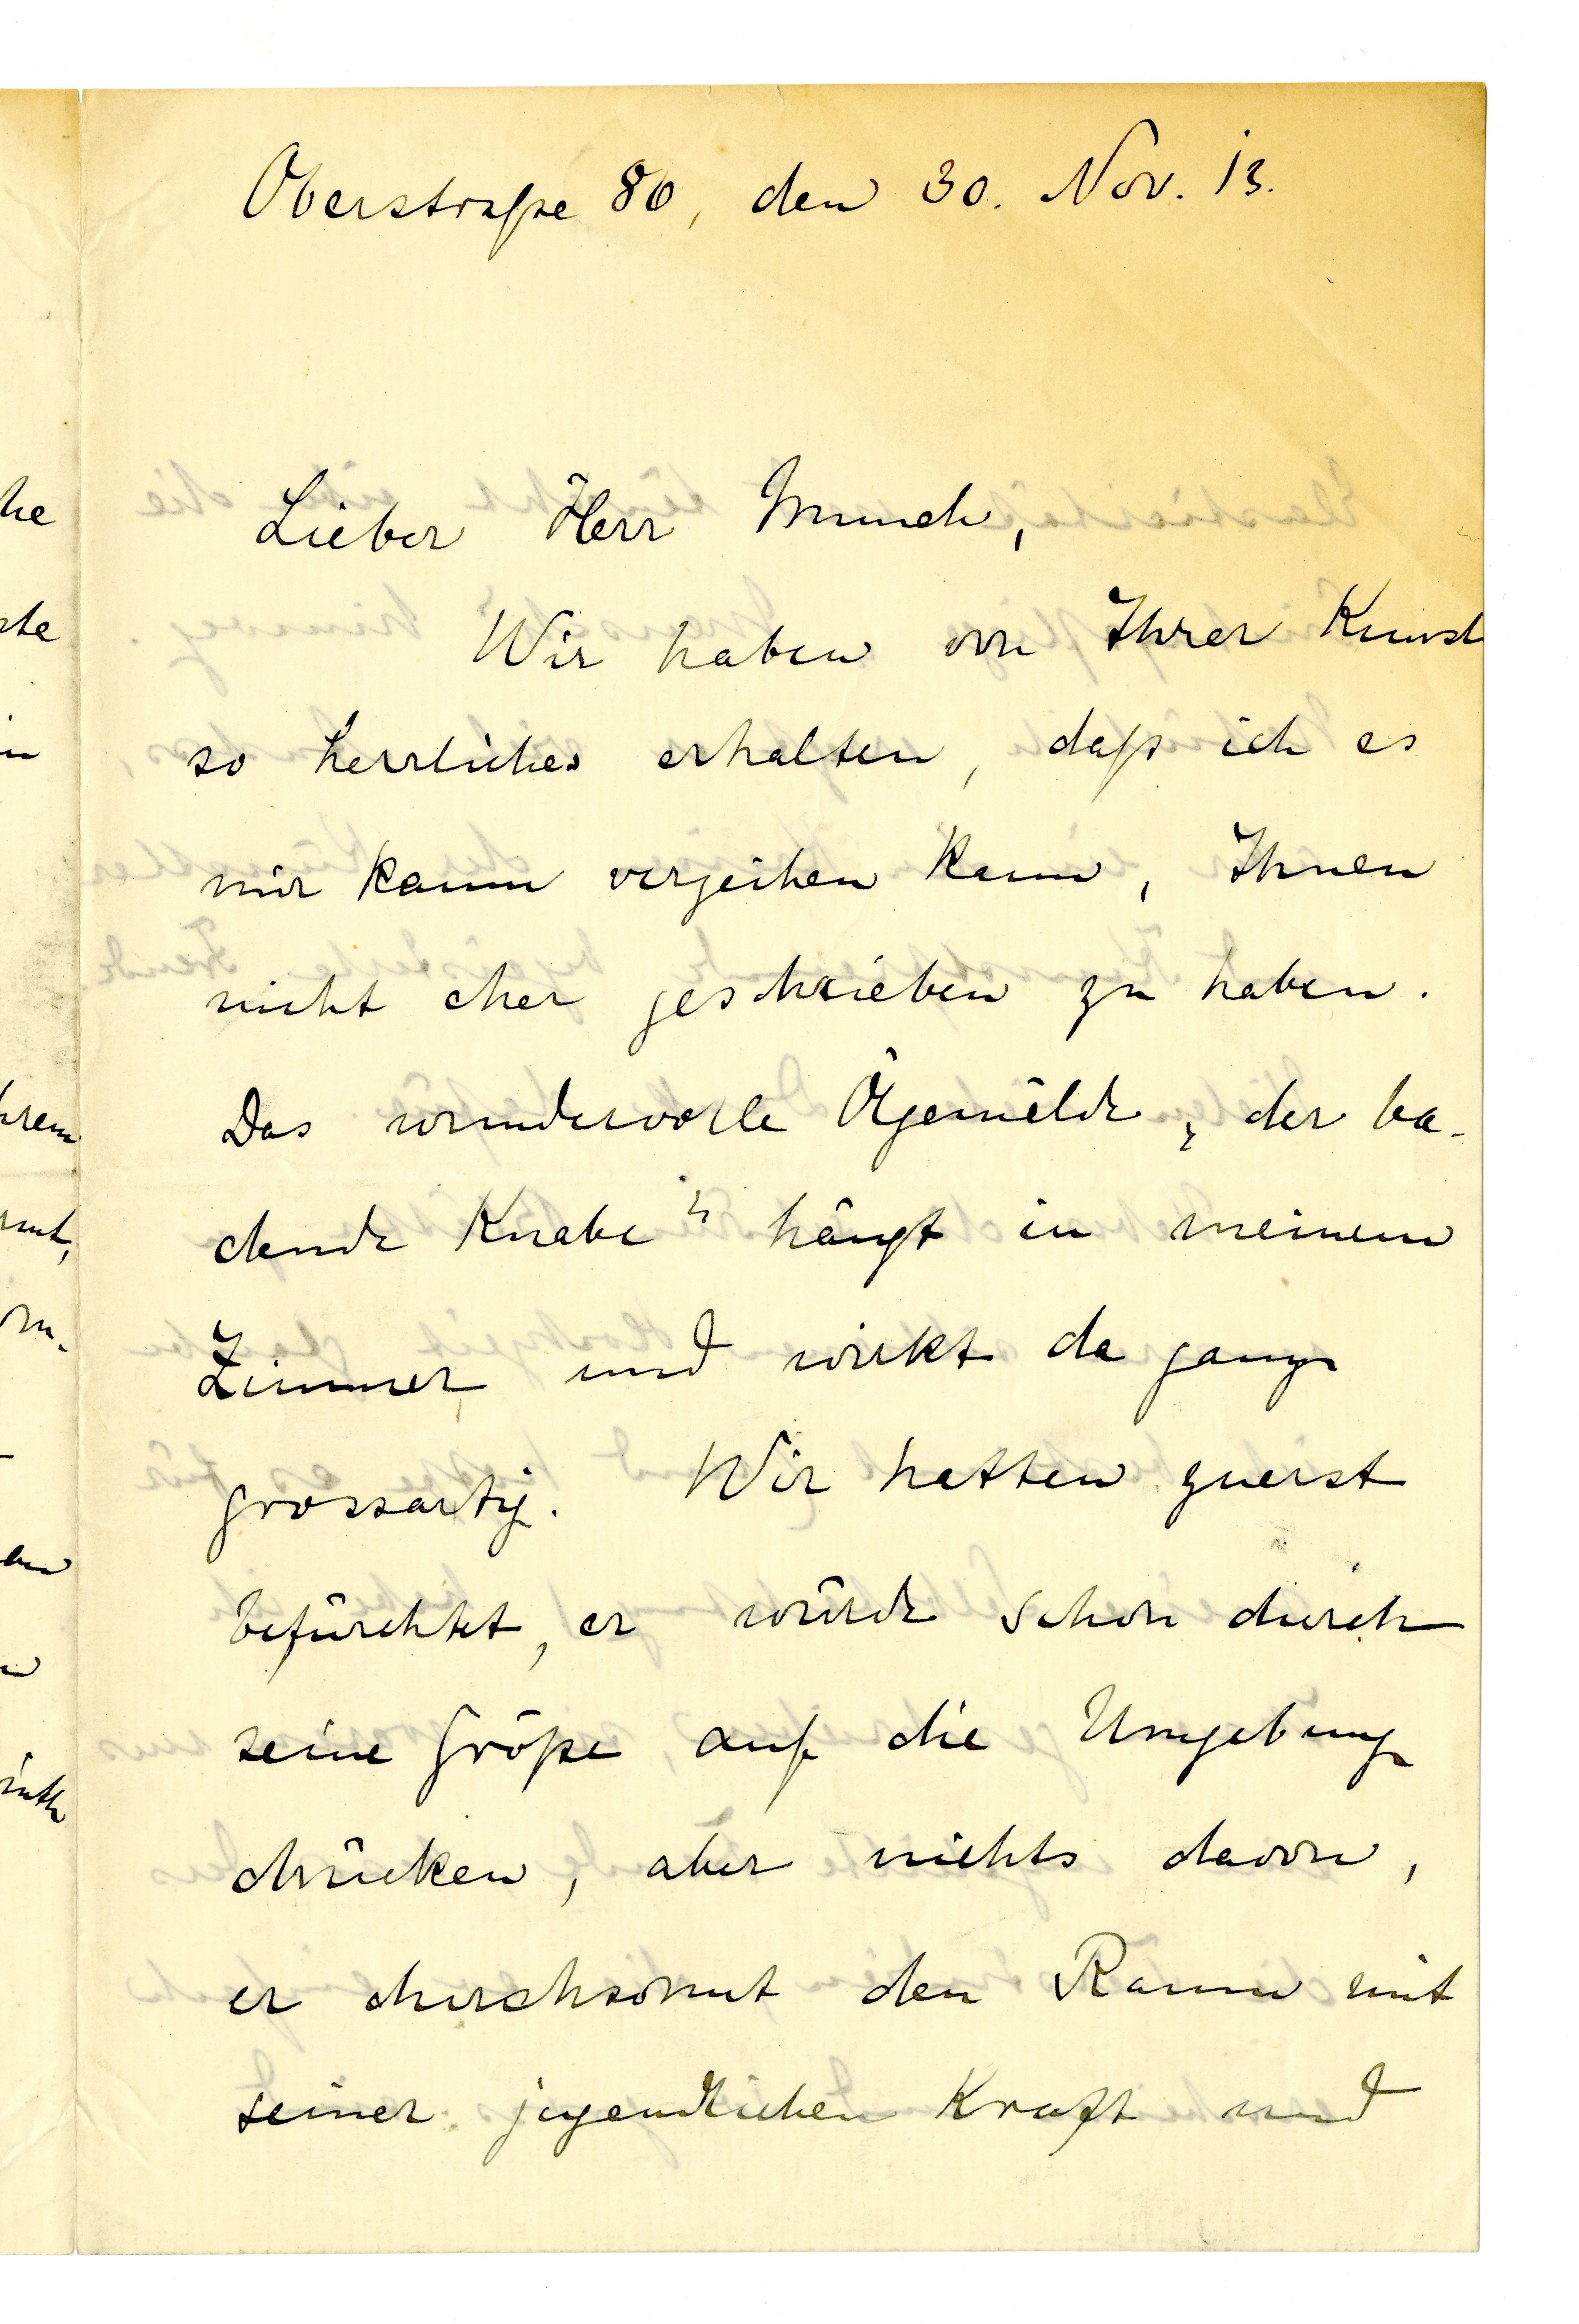 Oberstraße 80, den 30. Nov. 13.
Lieber Herr Munch,
Wir haben von Ihrer Kunst
so herrliches erhalten, daß ich es
mir kaum verzeihen kann, Ihnen
nicht eher geschrieben zu haben.
Das wundervolle Ölgemälde „der ba-
dende Knabe“ hängt in meinem
Zimmer, und wirkt da ganz
grossartig. Wir hatten zuerst
befürchtet, er würde schon durch
seine Größe auf die Umgebung
drücken, aber nichts davon,
er durchsonnt den Raum mit
seiner jugendlichen Kraft und